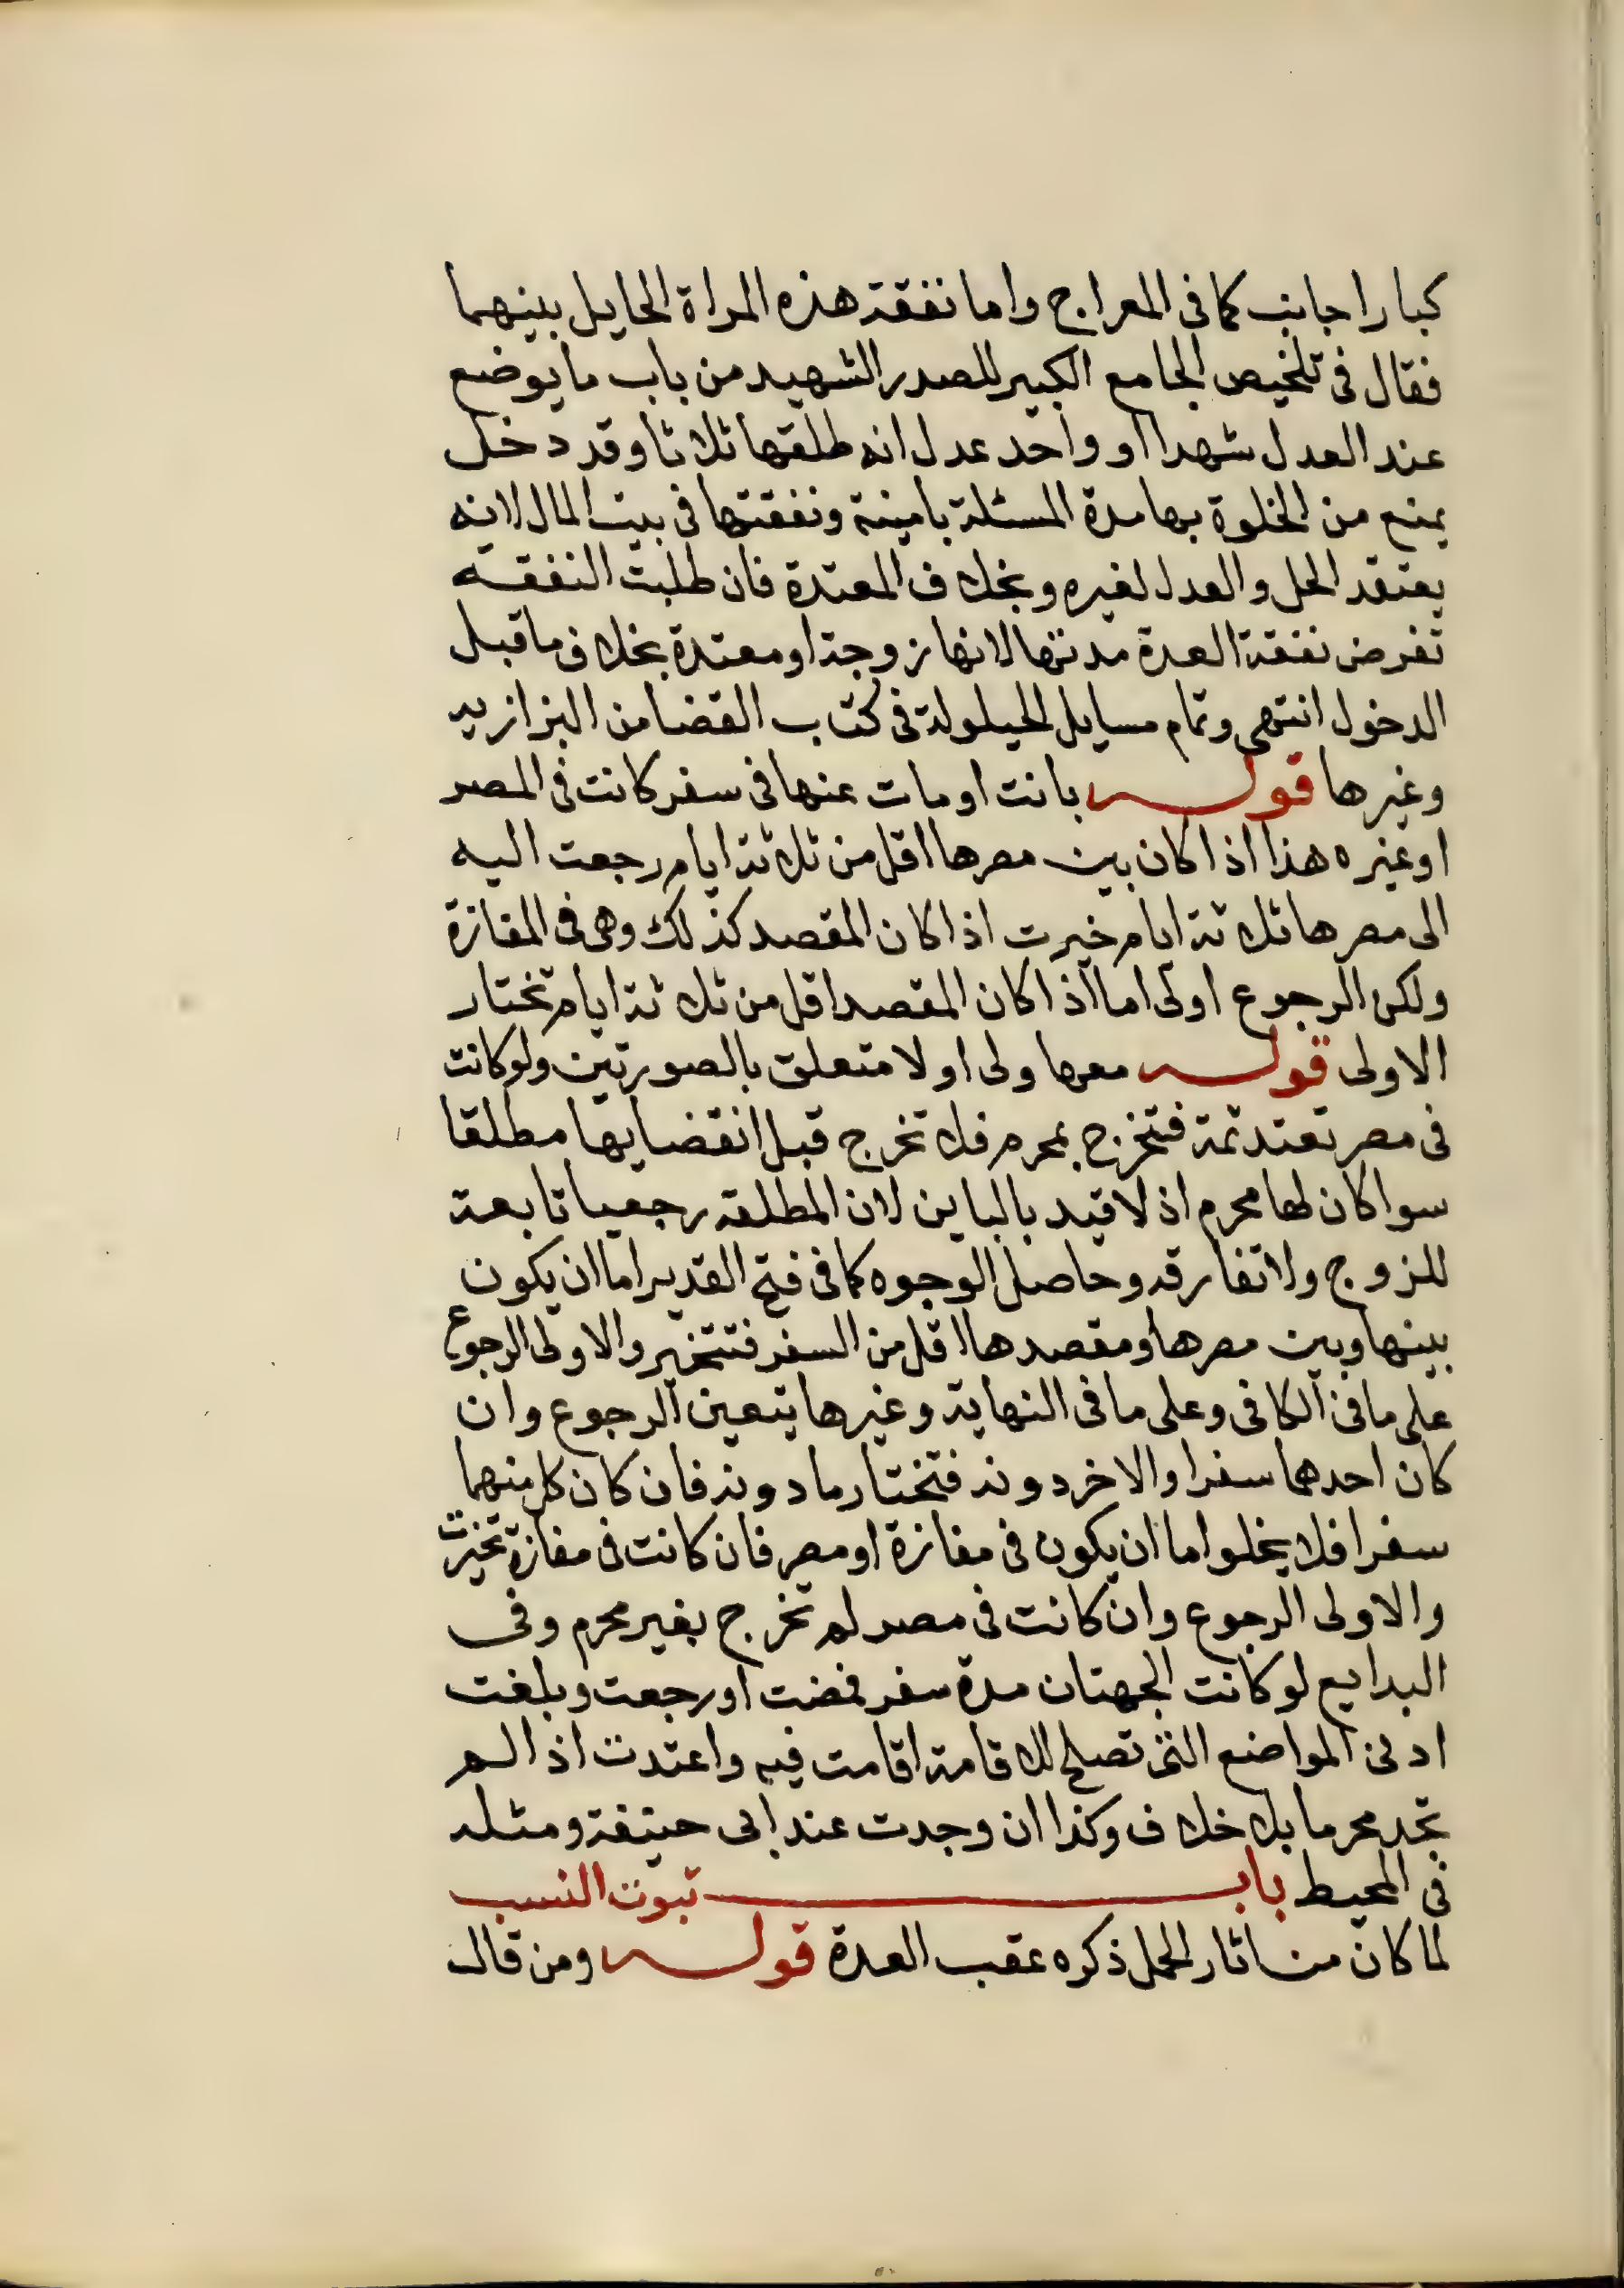 كبارا جانب كما في المعراج واما نفقة هذه المراة الحايل بينهما
فقال في تلخيص الجامع الكبير للصدر الشهيد من باب ما يوضع
عند العدل شهدا او واحد عدل انه طلقها ثلاثا وقد دخل
يمنع من الخلوة بها مدة المسئلة بامينة ونفقتها في بيت المال لانه
يعتقد الحل والعدل لغيره وبخلاف المعتدة فان طلبت النفقه
تفرض نفقة العدة مدتها لانها زوجة او معتدة بخلاف ما قبل
الدخول انتهى وتمام مسايل الحيلولة في كتاب القضا من البزازيه
وغيرها قوله بانت او مات عنها في سفر كانت في المصر
او غيره هذا اذا كان بين مصرها اقل من ثلاثة ايام رجعت اليه
الى مصرها ثلاثة ايام خيرت اذا كان المقصد كذلك وهي في المفازة
ولكن الرجوع اولى اما اذا كان المقصد اقل من ثلاثة ايام تختار
الاولى قوله معها ولى او لا متعلق بالصورتين ولو كانت
في مصر تعتد ثمة فتخرج بمحرم فلا تخرج قبل انقضايها مطلقا
سوا كان لها محرم اذ لا قيد بالباين لان المطلقه رجعيا تابعة
للزوج ولا تفارقه وحاصل الوجوه كما في فتح القدير اما ان يكون
بينها وبين مصرها ومقصدها اقل من السفر فتتخير والاولى الرجوع
على ما في الكافي وعلى ما في النهاية وغيرها يتعين الرجوع وان
كان احدهما سفرا والاخر دونه فتختار ما دونه فان كان كل منهما
سفرا فلا يخلو اما ان يكون في مفازة او مصر فان كانت في مفازة تخيرت
والاولى الرجوع وان كانت في مصر لم تخرج بغير محرم وفي
البدايع لو كانت الجهتان مدة سفر فمضت او رجعت وبلغت
ادنى المواضع التى تصلح للاقامة اقامت فيه واعتدت اذا لم
تجد محرما بلا خلاف وكذا ان وجدت عند ابي حنيفة ومثله
في المحيط باب ثبوت النسب
لما كان من اثار الحمل ذكره عقب العدة قوله ومن قال